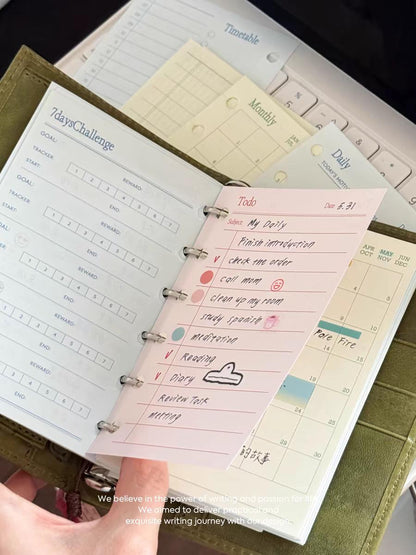 Timetable
Monthly
Daily
TODAY'S MOTTO
7daysChallenge
GOAL:
TRACKER:
REWARD:
1 2 3 4 5 6 7
START:
END:
GOAL:
TRACKER:
REWARD:
1 2 3 4 5 6 7
START:
END:
GOAL:
TRACKER:
REWARD:
1 2 3 4 5 6 7
START:
END:
REWARD:
1 2 3 4 5 6 7
END:
REWARD:
1 2 3 4 5 6 7
END:
REWARD:
1 2 3 4 5 6 7
END:
Todo
Date 5.31
Subject My Daily
Finish introduction
check the order
call mom
clean up my room
study spanish
meditation
Reading
Diary
Review Talk
meeting
APR MAY JUN
OCT NOV DEC
Pole Fire
的故事
We believe in the power of writing and passion for life.
We aimed to deliver practical and
exquisite writing journey with our design.